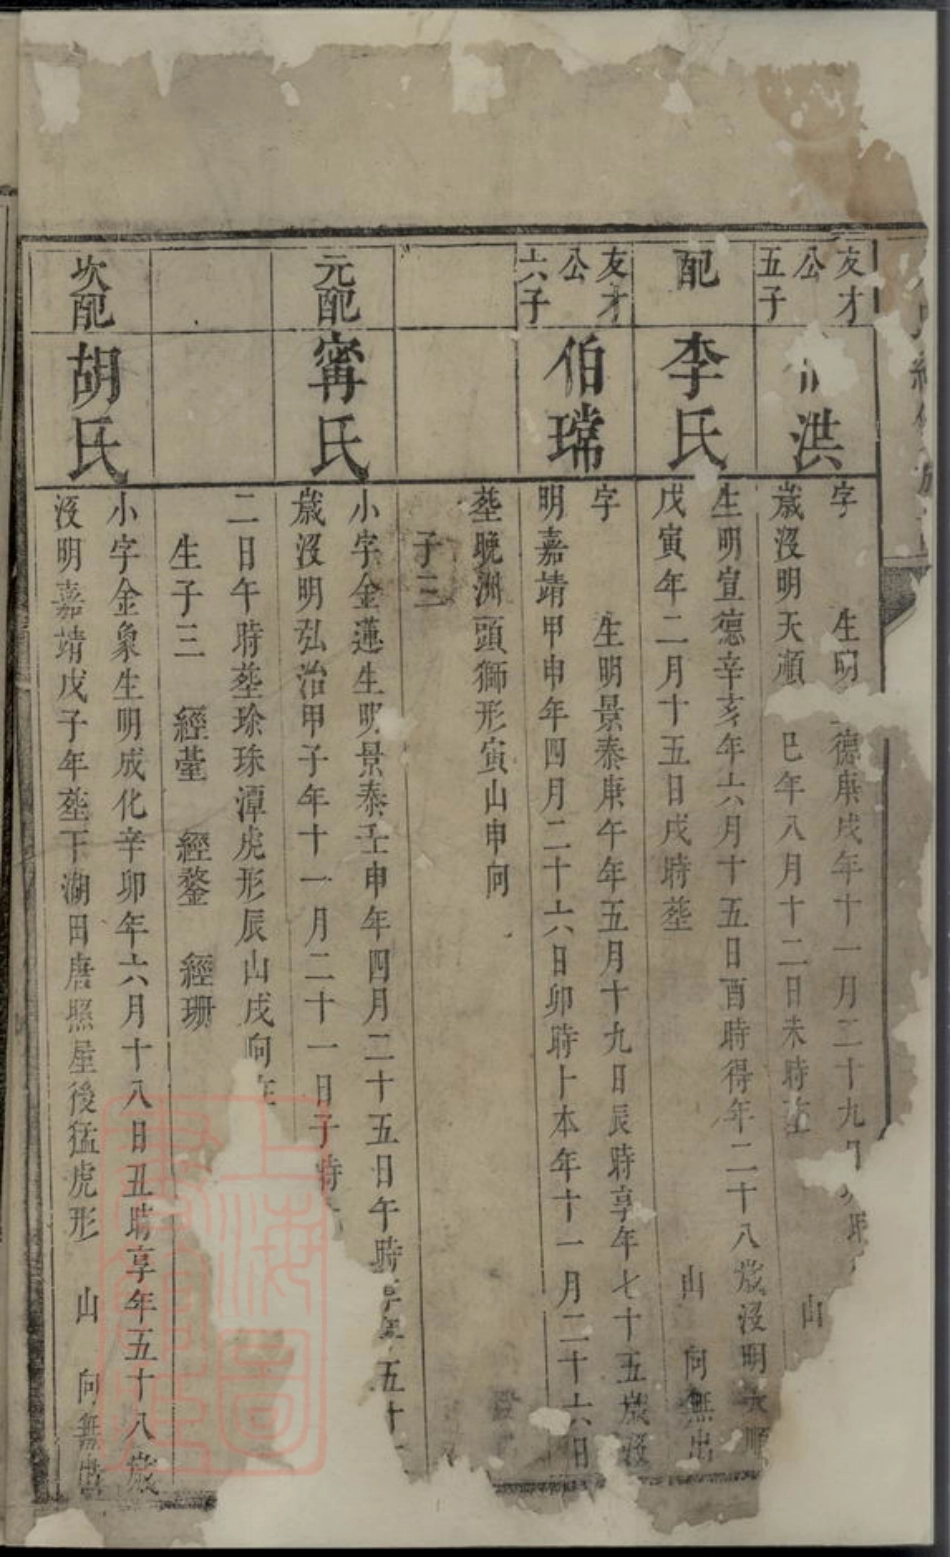 友才
公
五子
洪
字 生明 德庚戌年十一月二十九
歲沒明天順 巳年八月十二日未時塟 山
配
李氏
生明宣德辛亥年六月十五日酉時得年二十八歲沒明天順
戊寅年二月十五日戌時塟 山 向無出
友才
公
六子
伯瑺
字 生明景泰庚午年五月十九日辰時享年七十五歲沒
明嘉靖甲申年四月二十六日卯時卜本年十一月二十六日
塟晚洲頭獅形寅山申向
子三
元配
甯氏
小字金蓮生明景泰壬申年四月二十五日午時享年五十
歲沒明弘治甲子年十一月二十一日子時
二日午時塟珍珠潭虎形辰山戌向
生子三 經蕓 經鍪 經珊
次配
胡氏
小字金象生明成化辛卯年六月十八日丑時享年五十八歲
沒明嘉靖戊子年塟下湖田唐照星後猛虎形 山 向無出
上海圖